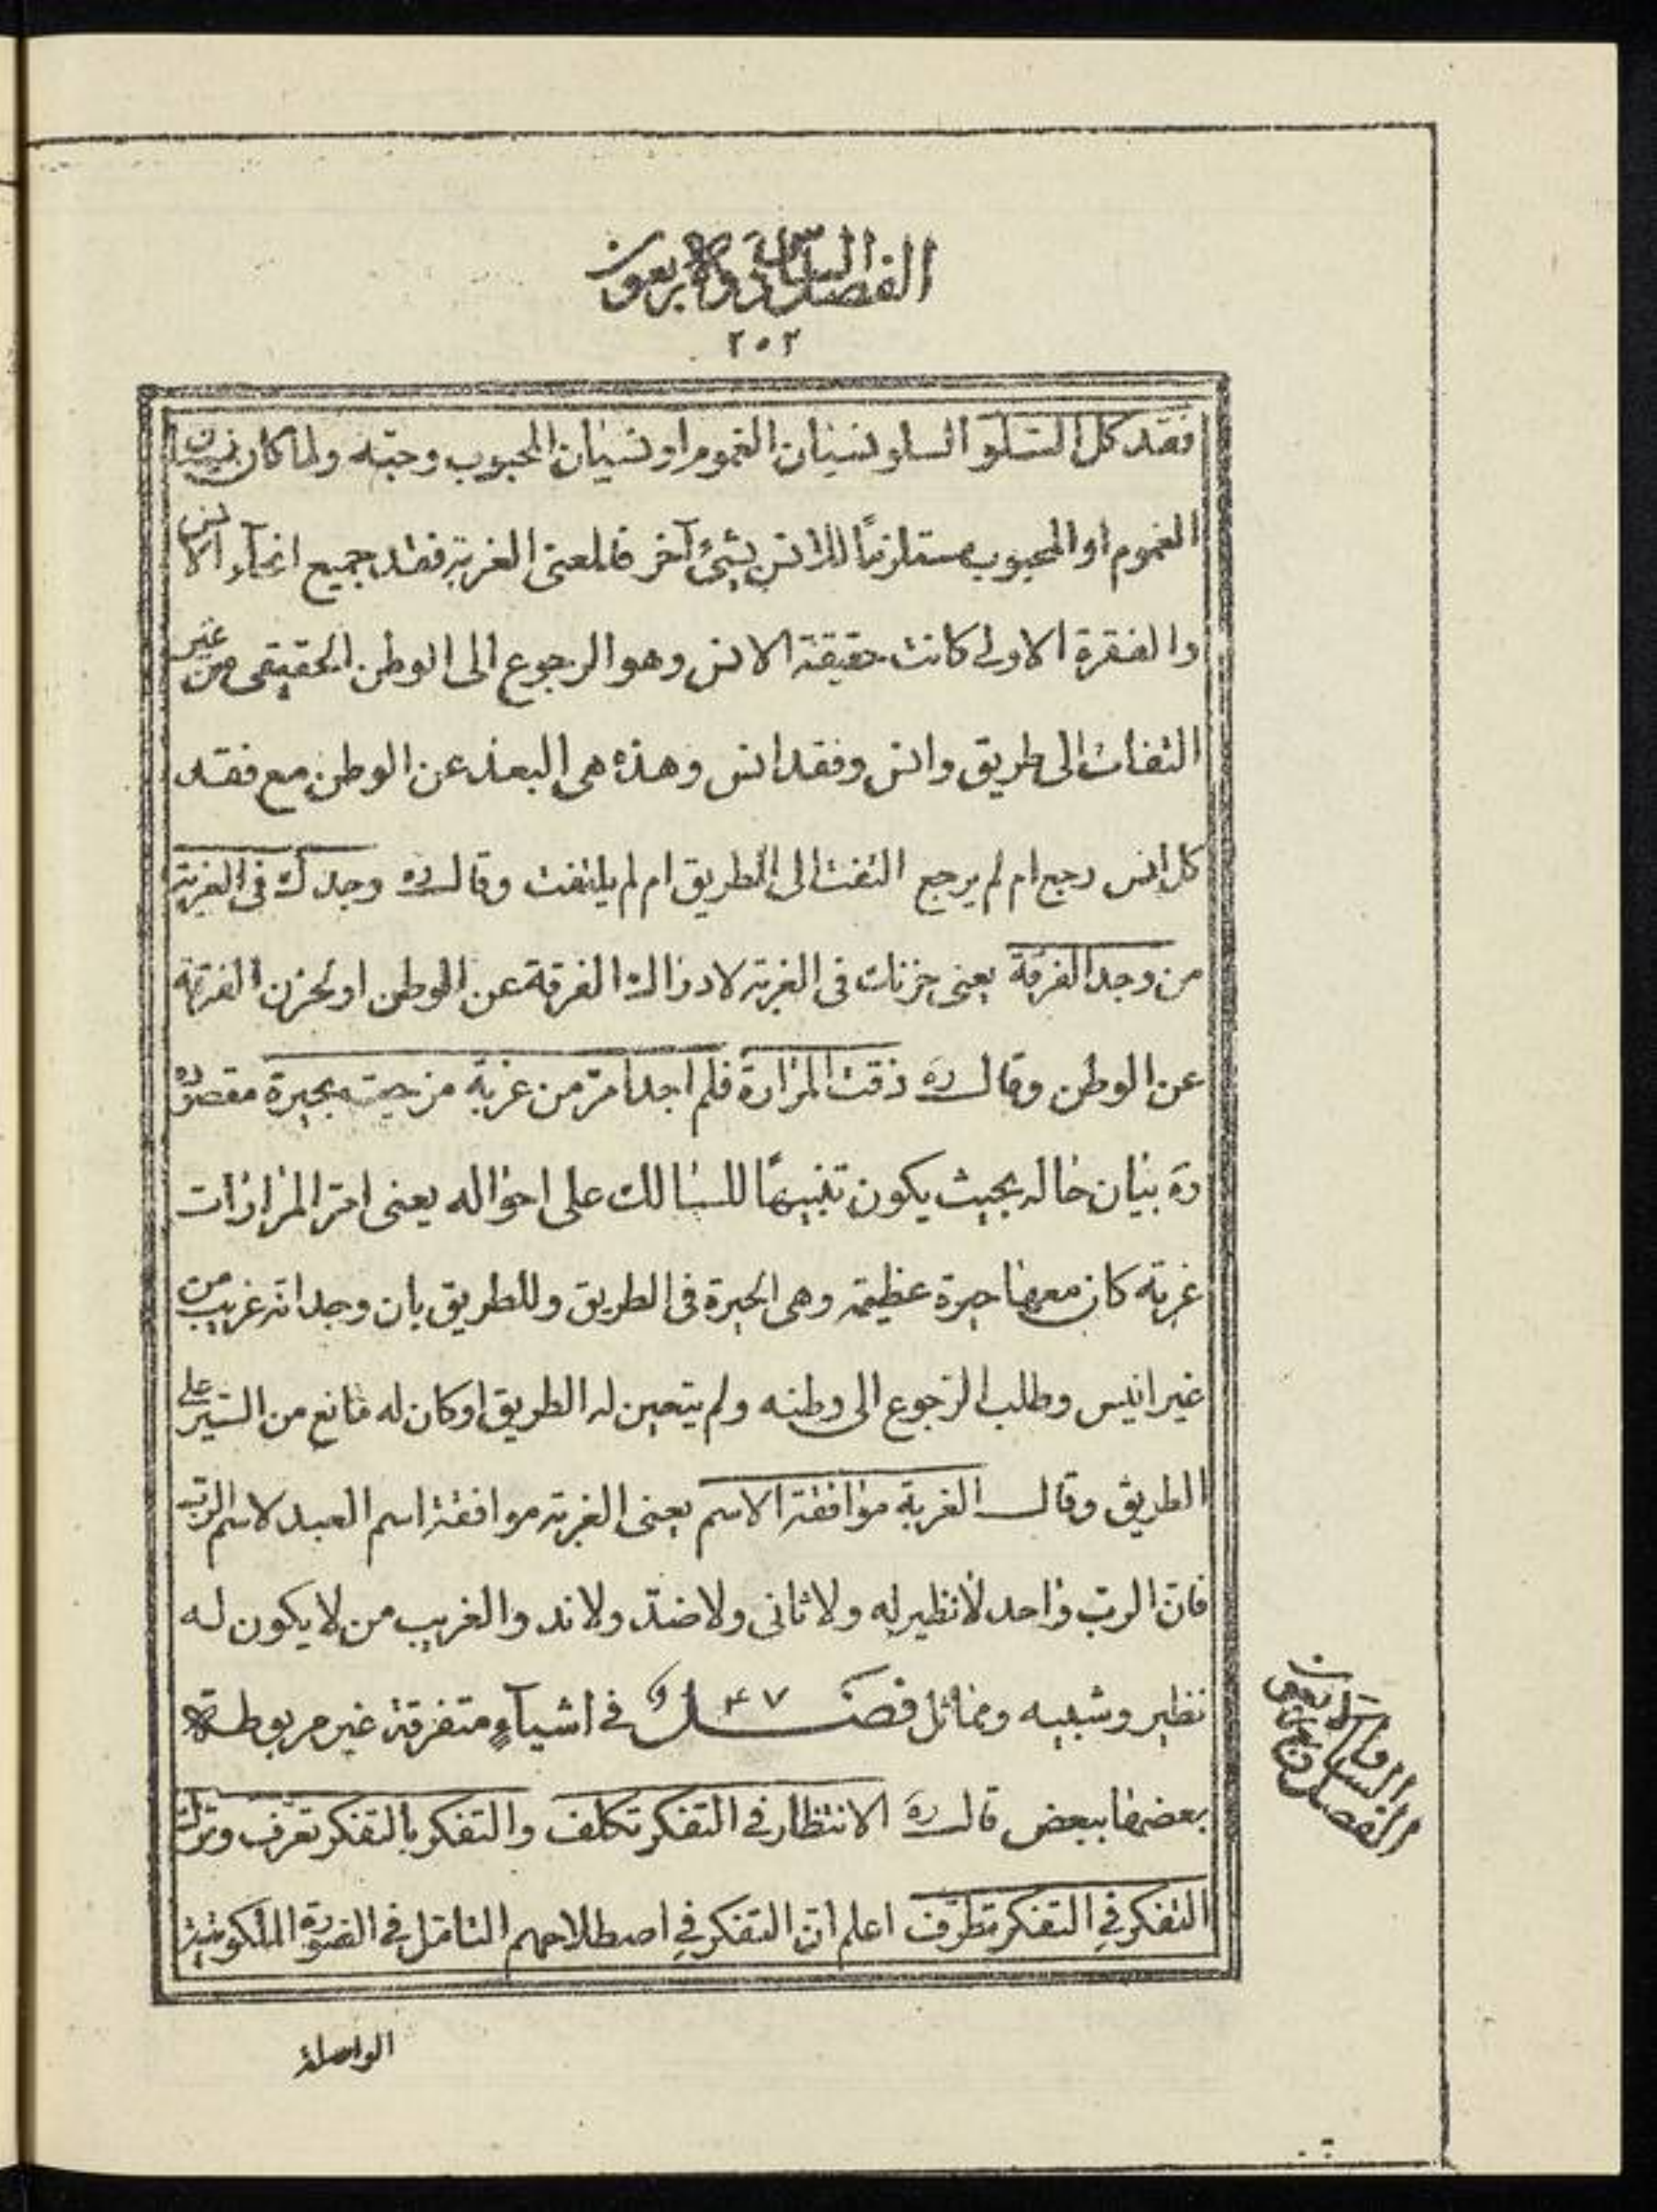 الفصل السادس والاربعون
٢٠٢
فقد كل السّلو السلو نسيان الغموم او نسيان المحبوب وحبّه ولما كان نسيان
الغموم او المحبوب مستلزمًا للانس بشیء آخر فالمعنى الغربة فقد جميع انحآء الانس
والفقرة الاولى كانت حقيقة الانس وهو الرجوع الى الوطن الحقيقى من غير
التفات الى طريق وانس وفقد انس وهذه هى البعد عن الوطن مع فقد
كل انس رجع ام لم يرجع التفت الى الطريق ام لم يلتفت وقال ره وجدك فى الغربة
من وجد الفرقة يعنى حزنك فى الغربة لادراك الفرقة عن الوطن او لحزن الفرقة
عن الوطن وقال ره ذقت المرارة فلم اجد امرّ من غربة مزجت بحيرة مقصوده
ره بيان حاله بحيث يكون تنبيهًا للسالك على احواله يعنى امرّ المرارات
غربة كان معها حيرة عظيمة وهى الحيرة فى الطريق وللطريق بان وجد انه غريب من
غير انيس وطلب الرّجوع الى وطنه ولم يتعين له الطريق او كان له مانع من السّير على
الطريق وقال الغربة موافقة الاسم يعنى الغربة موافقة اسم العبد لاسم الربّ
فانّ الربّ واحد لا نظير له ولا ثانى ولا ضدّ ولا ند والغريب من لا يكون له
نظير وشبيه ومماثل فصل ٤٧ فى اشيآءٍ متفرقة غير مربوطة
بعضها ببعض قال ره الانتظار فى التفكر تكلف والتفكر بالتفكر تعرّف وترك
التفكر فى التفكر تطرّف اعلم انّ التفكر فى اصطلاحهم التامّل فى الصّورة الملكوتية
الفصل السابع والاربعون
الواصلة